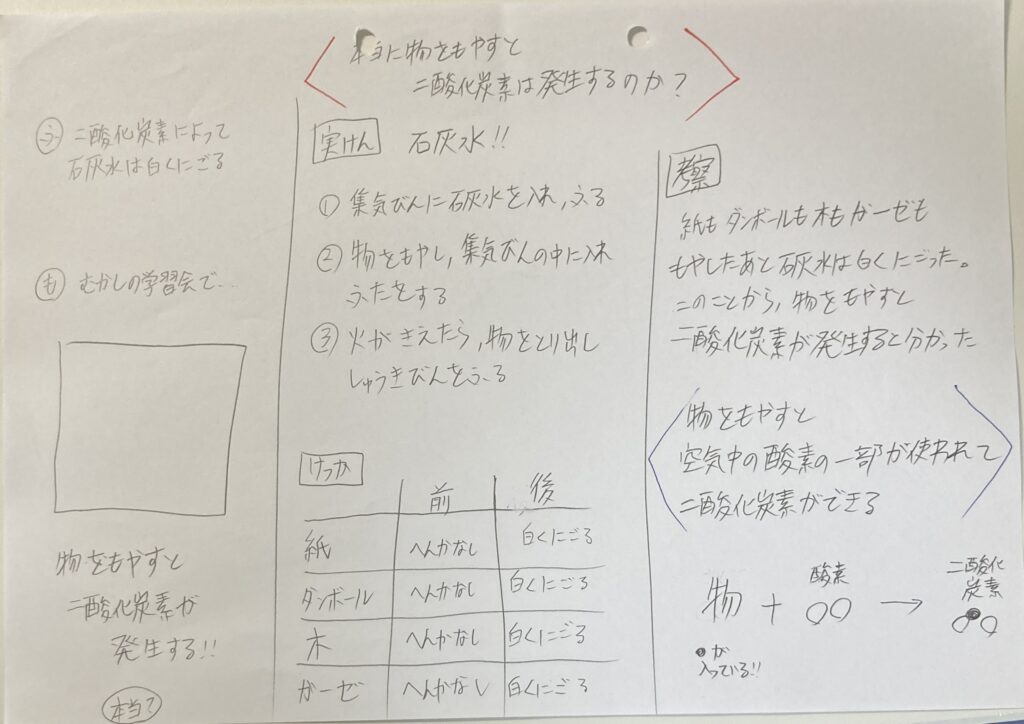 本当に物をもやすと
二酸化炭素は発生するのか?
ふ 二酸化炭素によって
石灰水は白くにごる
も むかしの学習会で...
物をもやすと
二酸化炭素が
発生する!!
本当?
実けん 石灰水!!
① 集気びんに石灰水を入れ,ふる
② 物をもやし,集気びんの中に入れ
ふたをする
③ 火がきえたら,物をとり出し
しゅうきびんをふる
けっか
前 後
紙 へんかなし 白くにごる
ダンボール へんかなし 白くにごる
木 へんかなし 白くにごる
ガーゼ へんかなし 白くにごる
考察
紙もダンボールも木もガーゼも
もやしたあと石灰水は白くにごった。
このことから,物をもやすと
二酸化炭素が発生すると分かった
物をもやすと
空気中の酸素の一部が使われて
二酸化炭素ができる
物 + 酸素 → 二酸化
炭素
●が
入っている!!